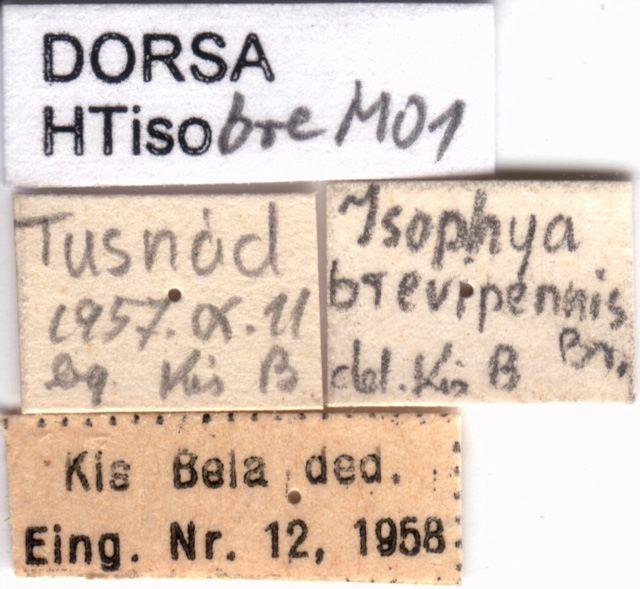 DORSA
HTisobre M01
Tusnád
1957. IX. 11
leg. Kis B
Isophya
brevipennis
Br.
det. Kis B
Kis Bela ded.
Eing. Nr. 12, 1958